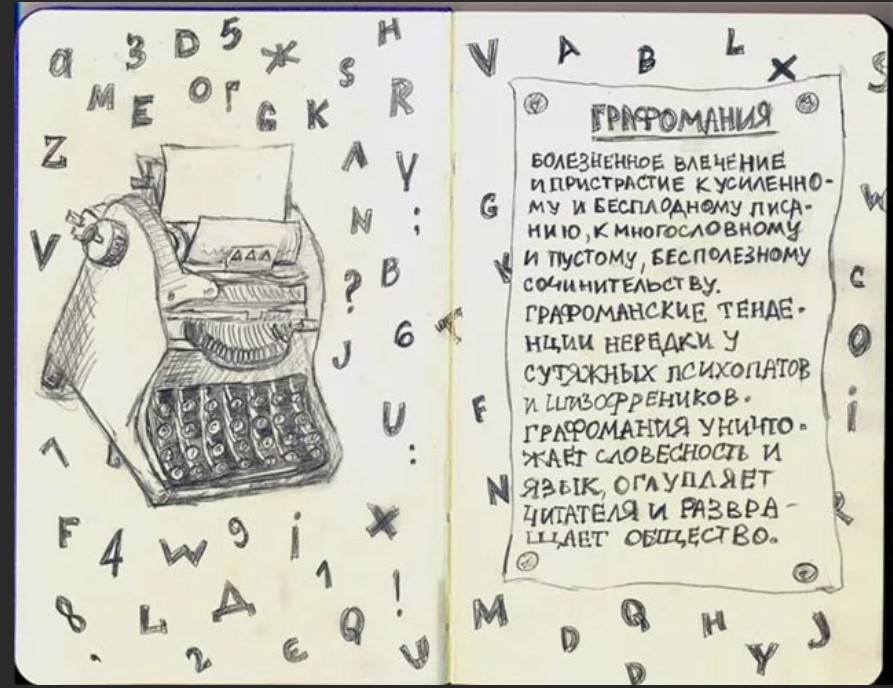 a 3 D 5 Ж H
M E O Г G K S R
Z Л Y
V N ;
ДДД
? B
J 6
U :
F 4 W 9 i X
8 L Д 1 Q !
2 є U
V A B L X S
ГРАФОМАНИЯ
БОЛЕЗНЕННОЕ ВЛЕЧЕНИЕ
И ПРИСТРАСТИЕ К УСИЛЕННО-
МУ И БЕСПЛОДНОМУ ПИСА-
НИЮ, К МНОГОСЛОВНОМУ
И ПУСТОМУ, БЕСПОЛЕЗНОМУ
СОЧИНИТЕЛЬСТВУ.
ГРАФОМАНСКИЕ ТЕНДЕ-
НЦИИ НЕРЕДКИ У
СУТЯЖНЫХ ПСИХОПАТОВ
И ШИЗОФРЕНИКОВ.
ГРАФОМАНИЯ УНИЧТО-
ЖАЕТ СЛОВЕСНОСТЬ И
ЯЗЫК, ОГЛУПЛЯЕТ
ЧИТАТЕЛЯ И РАЗВРА-
ЩАЕТ ОБЩЕСТВО.
G W
K C
O
F i
N R
M D Q H J
D Y